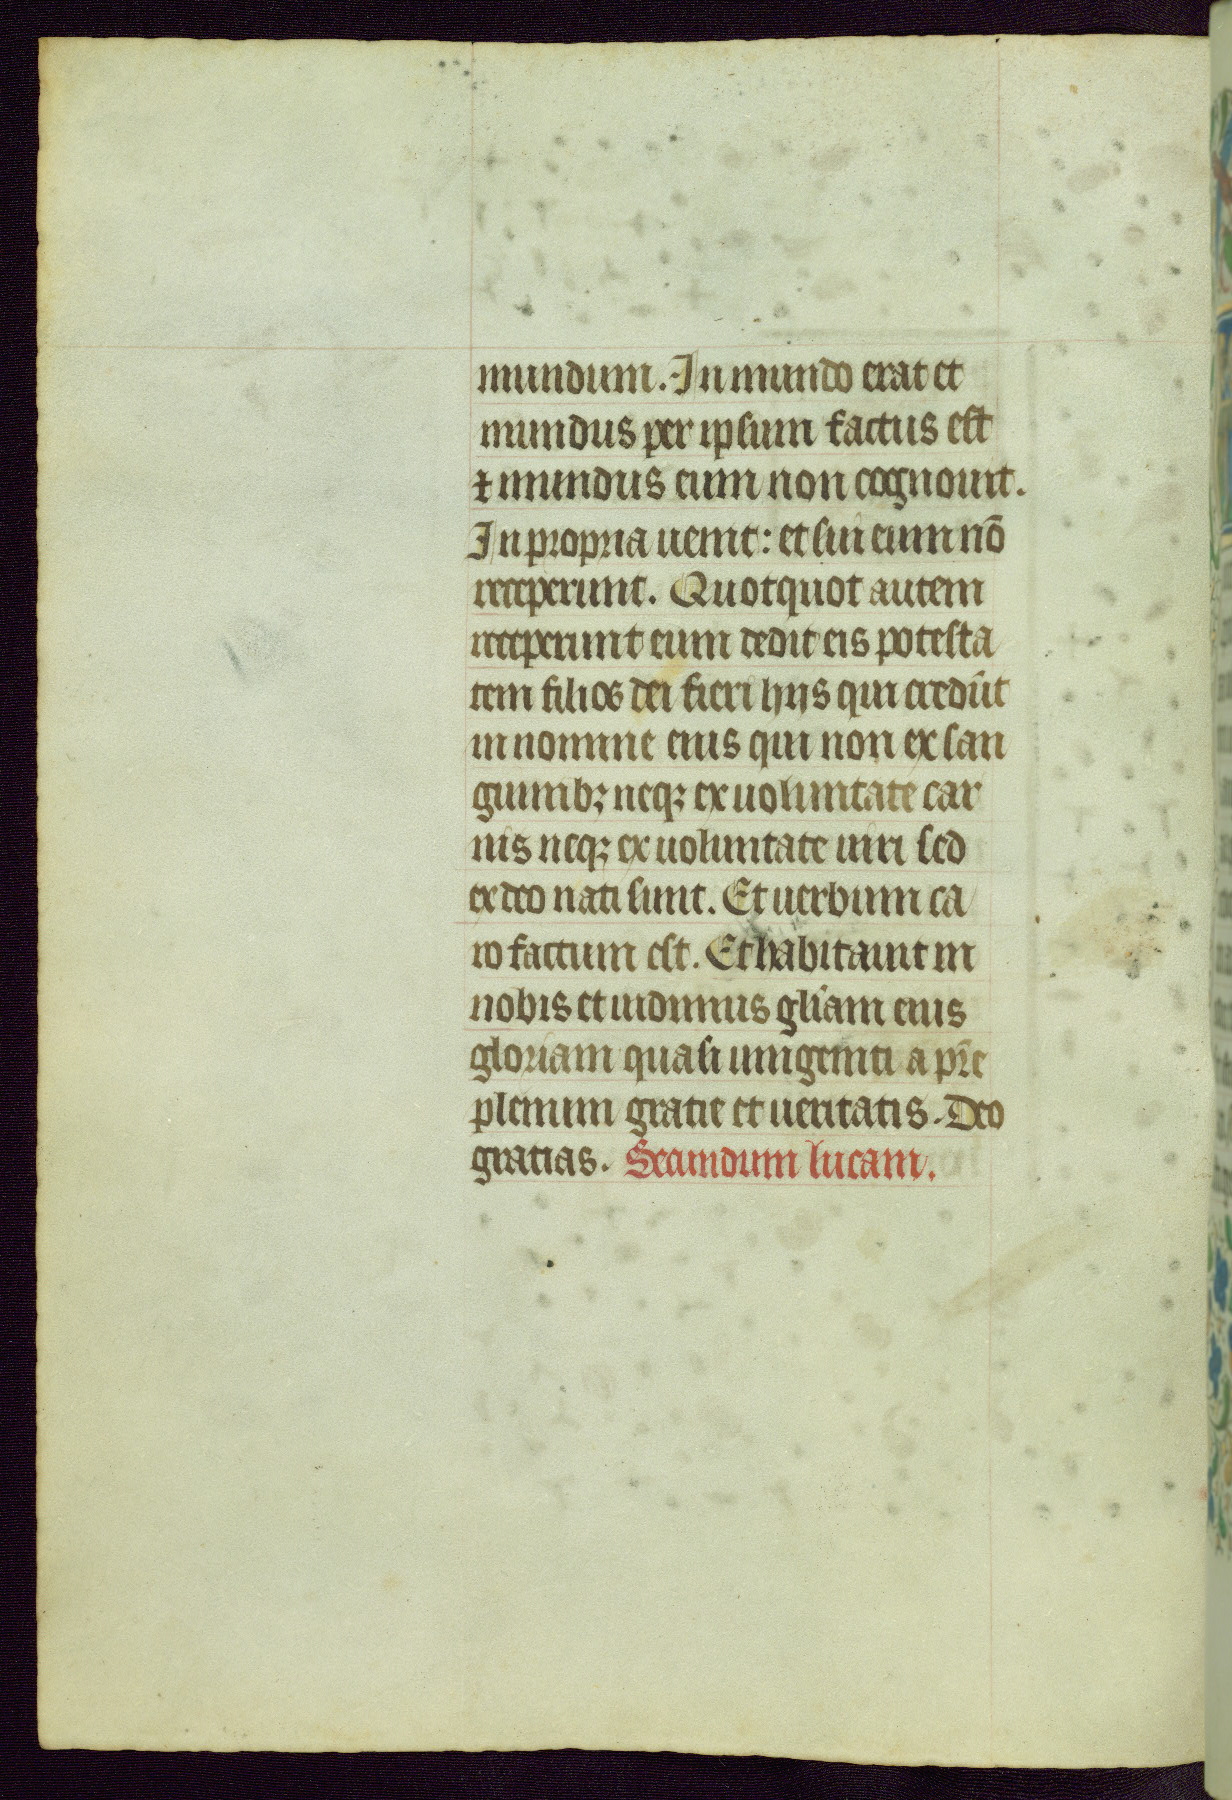 mundum. In mundo erat et
mundus per ipsum factus est
⁊ mundus eum non cognouit.
In propria uenit: et sui eum nō
receperunt. Quotquot autem
receperunt eum dedit eis potesta
tem filios dei fieri hijs qui credūt
in nomine eius qui non ex san
guinibꝫ neqꝫ ex uoluntate car
nis neqꝫ ex uoluntate uiri sed
ex deo nati sunt. Et uerbum ca
ro factum est. Et habitauit in
nobis et uidimus glīam eius
gloriam quasi unigeniti a pr̄e
plenum gratie et ueritatis. Deo
gratias. Secundum lucam.